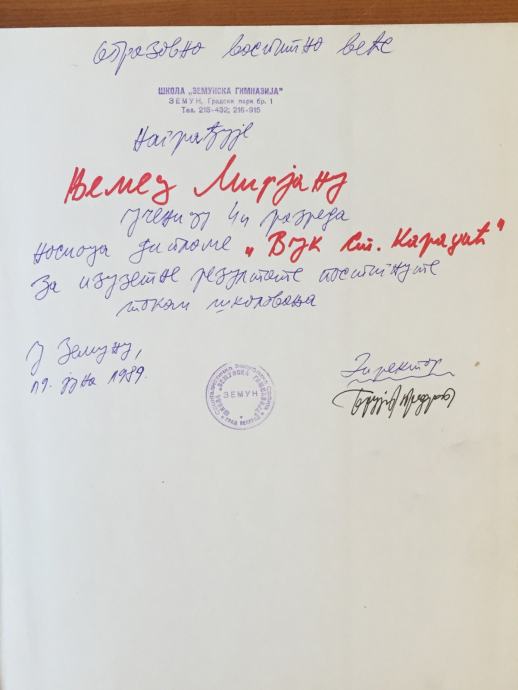 Образовно васпитно веће
ШКОЛА „ЗЕМУНСКА ГИМНАЗИЈА”
ЗЕМУН, Градски парк бр. 1
Тел. 216-432; 216-915
награђује
Њемец Мирјану
ученицу 4 разреда
носиоца дипломе „Вук Ст. Караџић”
за изузетне резултате постигнуте
током школовања
У Земуну,
19. јуна 1989.
Директор
ШКОЛА „ЗЕМУНСКА ГИМНАЗИЈА”
ЗЕМУН